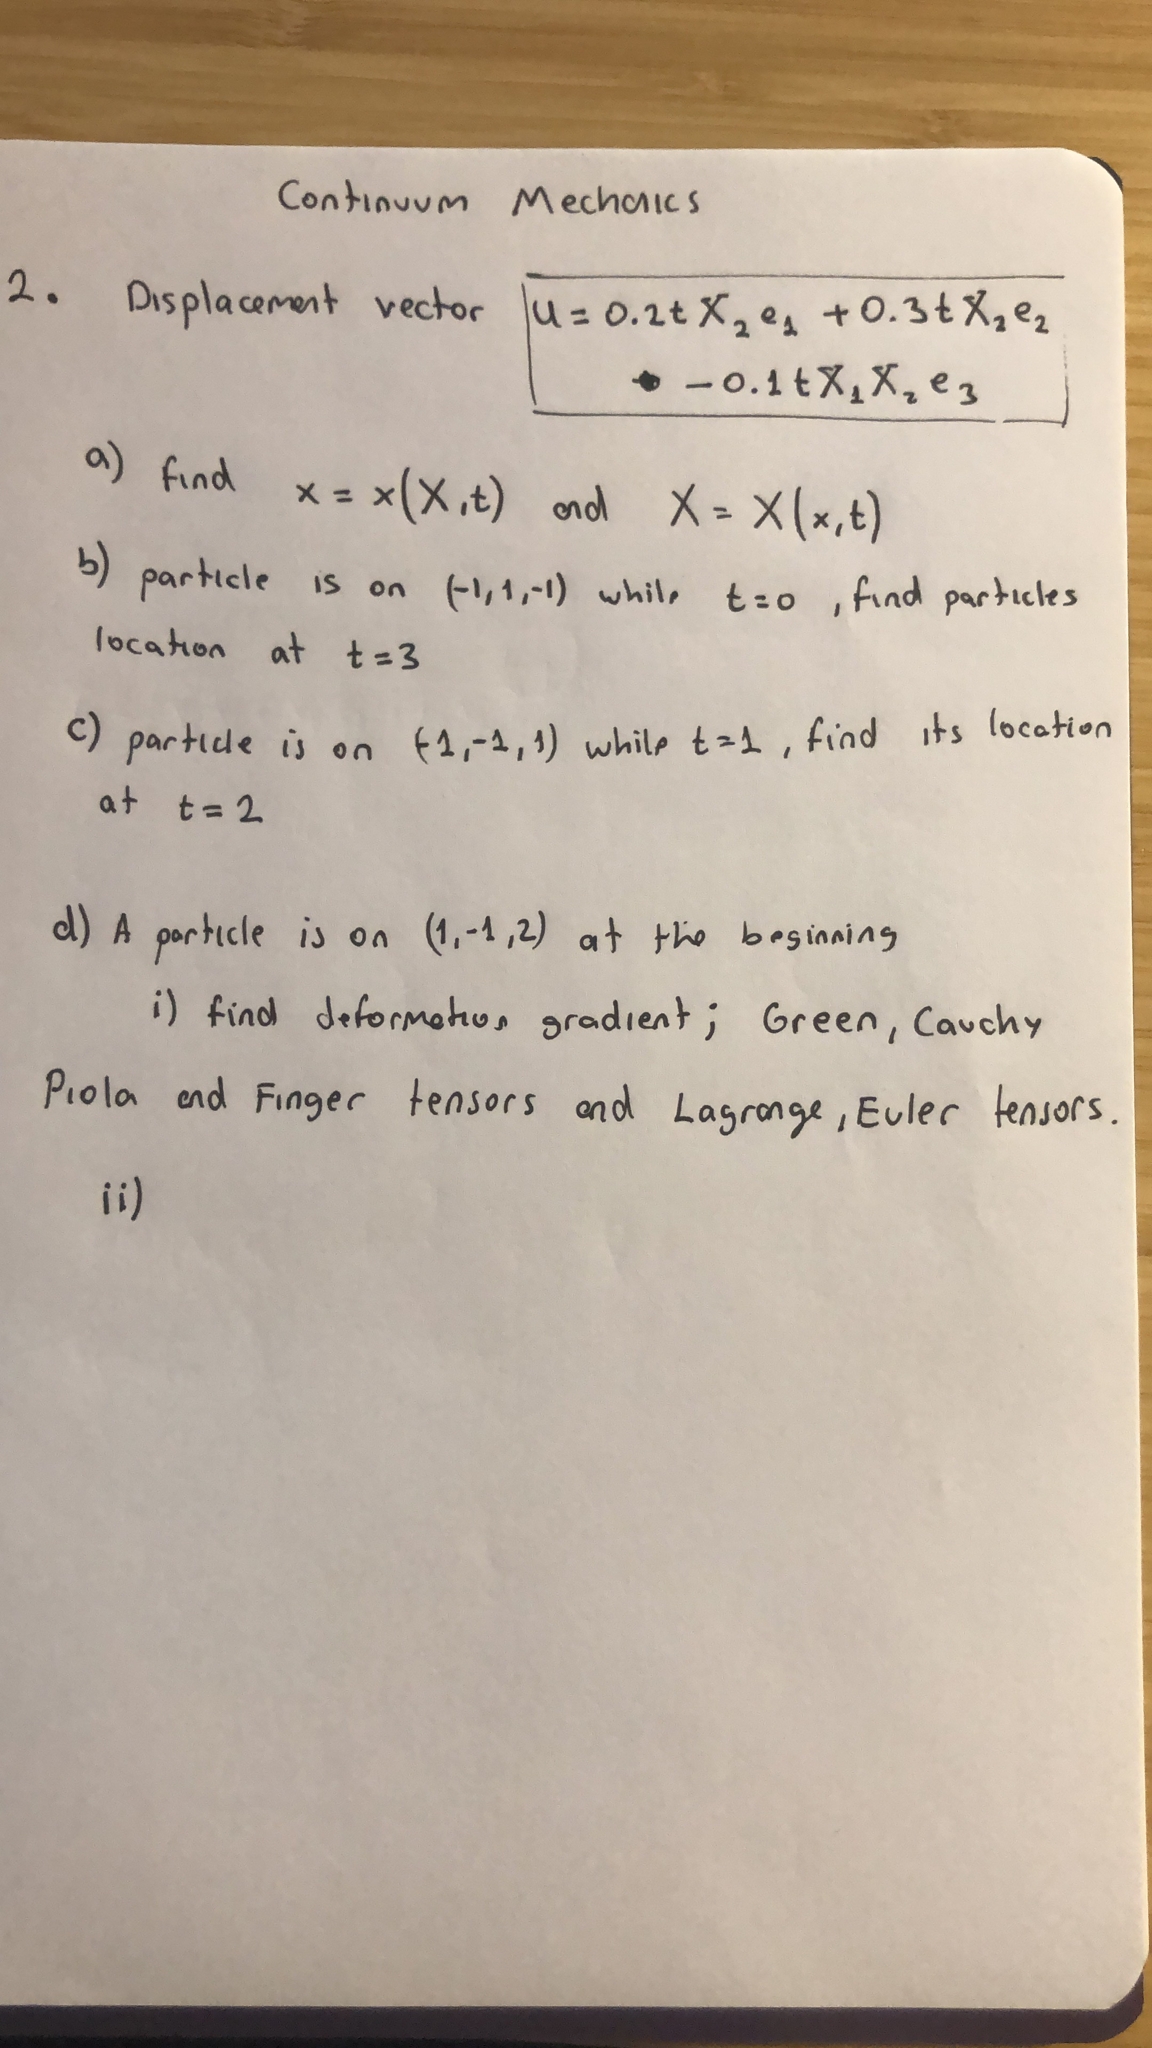 Continuum Mechanics
2. Displacement vector u = 0.2t X₂ e₁ + 0.3t X₂ e₂
- 0.1 t X₁ X₂ e₃
a) find x = x(X,t) and X = X(x,t)
b) particle is on (-1,1,-1) while t=0 , find particles
location at t=3
c) particle is on (-1,-1,1) while t=1 , find its location
at t=2
d) A particle is on (1,-1,2) at the beginning
i) find deformation gradient; Green, Cauchy
Piola and Finger tensors and Lagrange, Euler tensors.
ii)